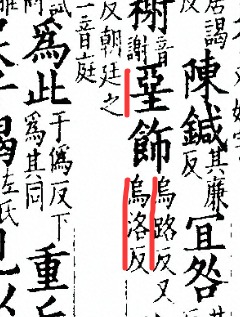 居謁
陳鍼其廉反宜咎
榭音謝堊飾烏路反又
烏洛反
反朝廷之
一音庭
為此于偽反下
為其同
重
左氏